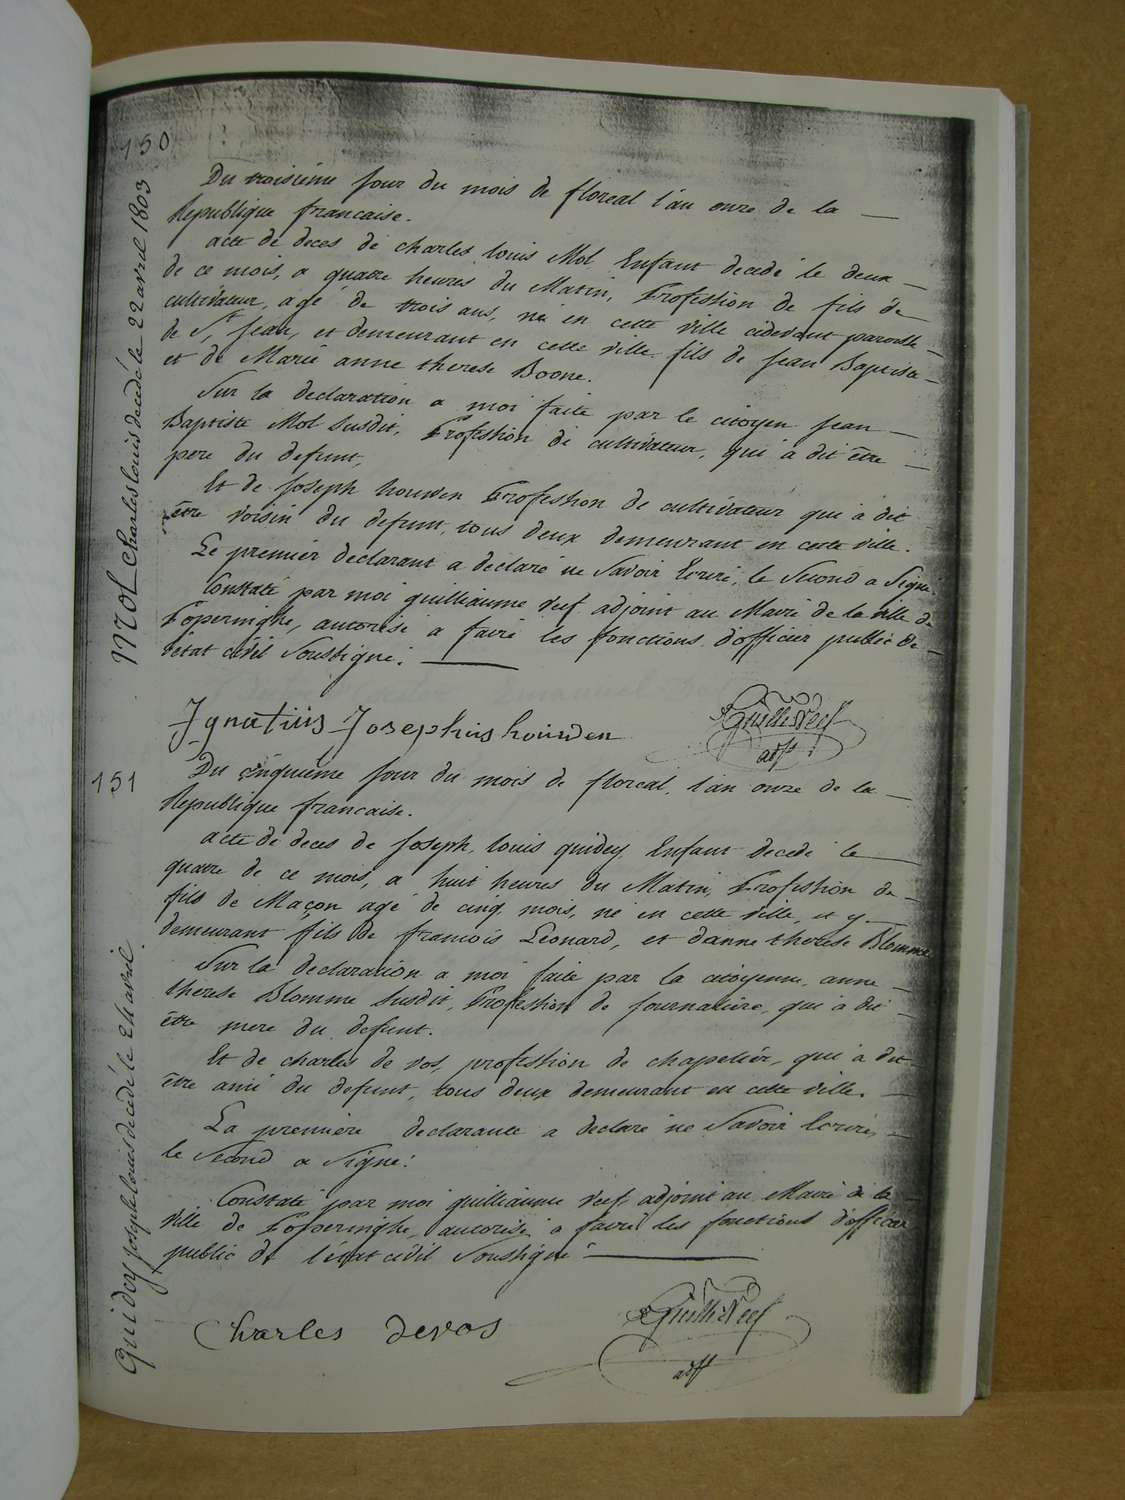 150
Du troisième Jour du mois de floreal l'an onze de la
Republique francaise.
acte de deces de charles louis Mol Enfant decedé le deux
de ce mois, a quatre heures du Matin, Profession de fils de
cultivateur, agé de trois ans, né en cette ville cidevant paroisse
de St. Jean, et demeurant en cette ville fils de Jean Baptiste
et de Marie anne therese Boone.
Sur la declaration a moi faite par le citoyen Jean
Baptiste Mol Susdit, Profession de cultivateur, qui a dit être
pere du defunt,
Et de Joseph houwen Profession de cultivateur qui a dit
être voisin du defunt, tous deux demeurant en cette ville.
Le premier declarant a declaré ne Savoir Ecrire, le Second a Signé.
Constaté par moi guilliaume veef adjoint au Maire de la ville de
Poperinghe, autorisé a faire les fonctions d'officier public de
l'état civil Soussigné.
Mol charles louis decedé le 22 avril 1803
Ignatius Josephus houwen
Guilli Veef
adjt
151
Du cinquieme Jour du mois de floreal, l'an onze de la
Republique francaise.
acte de deces de Joseph, louis guidey Enfant decedé le
quatre de ce mois, a huit heures du Matin, Profession de
fils de Maçon agé de cinq mois, né en cette ville, et y
demeurant fils de francois Leonard, et d'anne therese Blomme
Sur la declaration a moi faite par la citoyenne, anne
therese Blomme Susdit, Profession de Journaliere, qui a dit
être mere du defunt.
Et de charles de vos, profession de chapelier, qui a dit
être ami du defunt, tous deux demeurant en cette ville.
La premiere declarante a declaré ne Savoir Ecrire,
le Second a Signé.
Constaté par moi guilliaume veef adjoint au Maire de la
ville de Poperinghe, autorisé a faire les fonctions d'officier
public de l'état civil Soussigné
Guidey joseph louis decedé le 24 avril
Charles devos
Guilli Veef
adjt